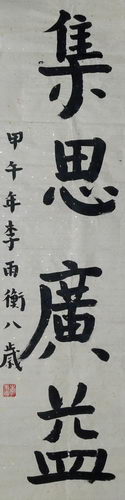 集思廣益
甲午年李雨衡八歲